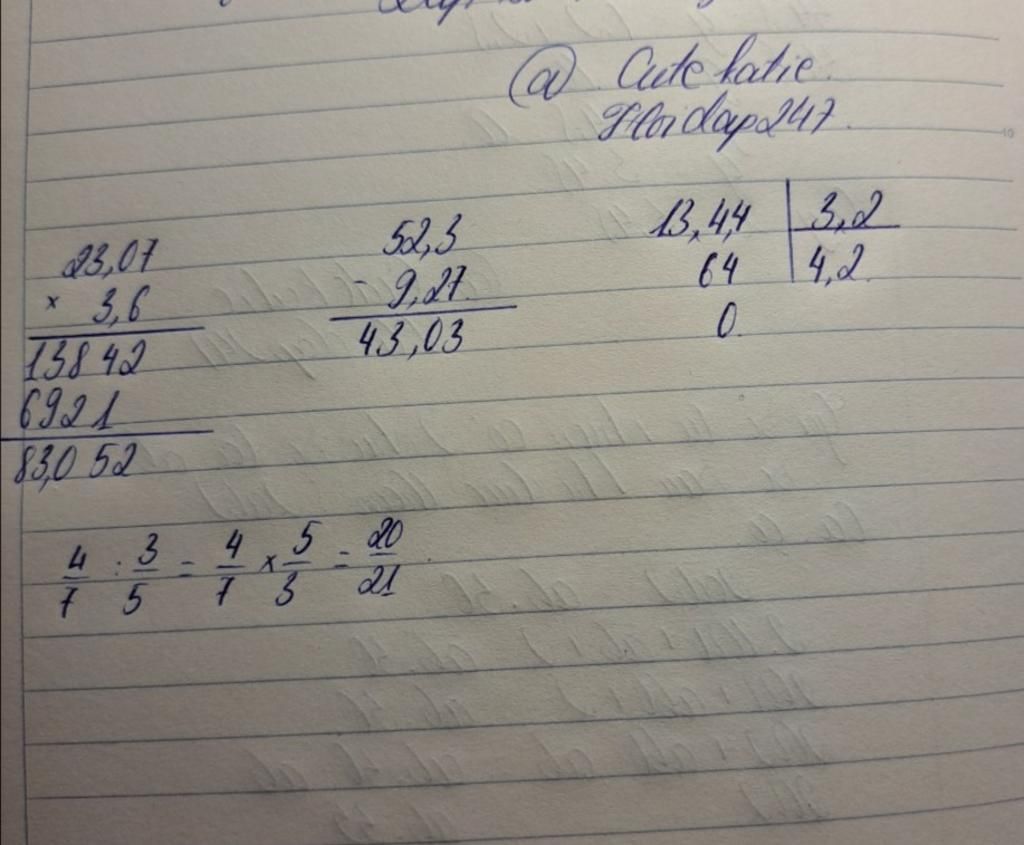 @ Cute katie
Floridap247.
23,07
× 3,6
13842
6921
83,052
52,3
- 9,27
43,03
13,4,4 | 3,2
64 4,2
0
4/7 : 3/5 = 4/7 × 5/3 = 20/21